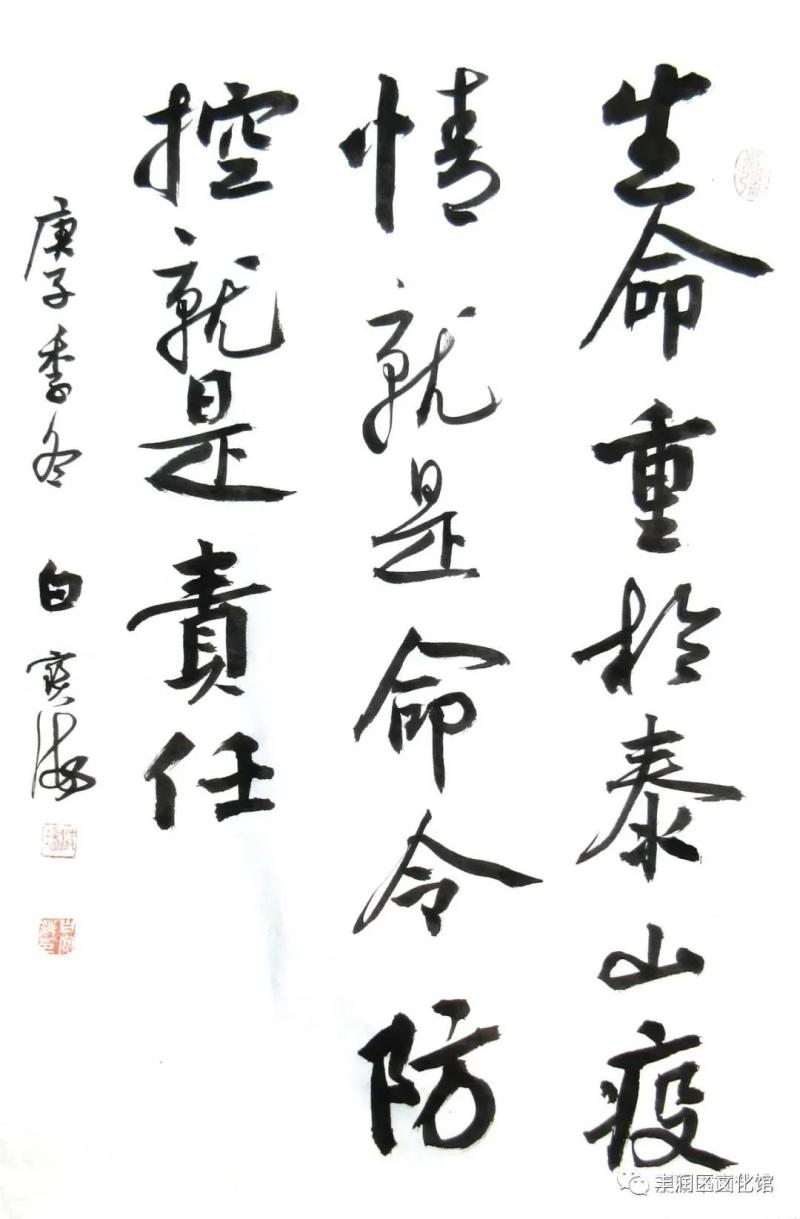 生命重於泰山疫
情就是命令防
控就是責任
庚子季冬 白寳海
丰润区文化馆